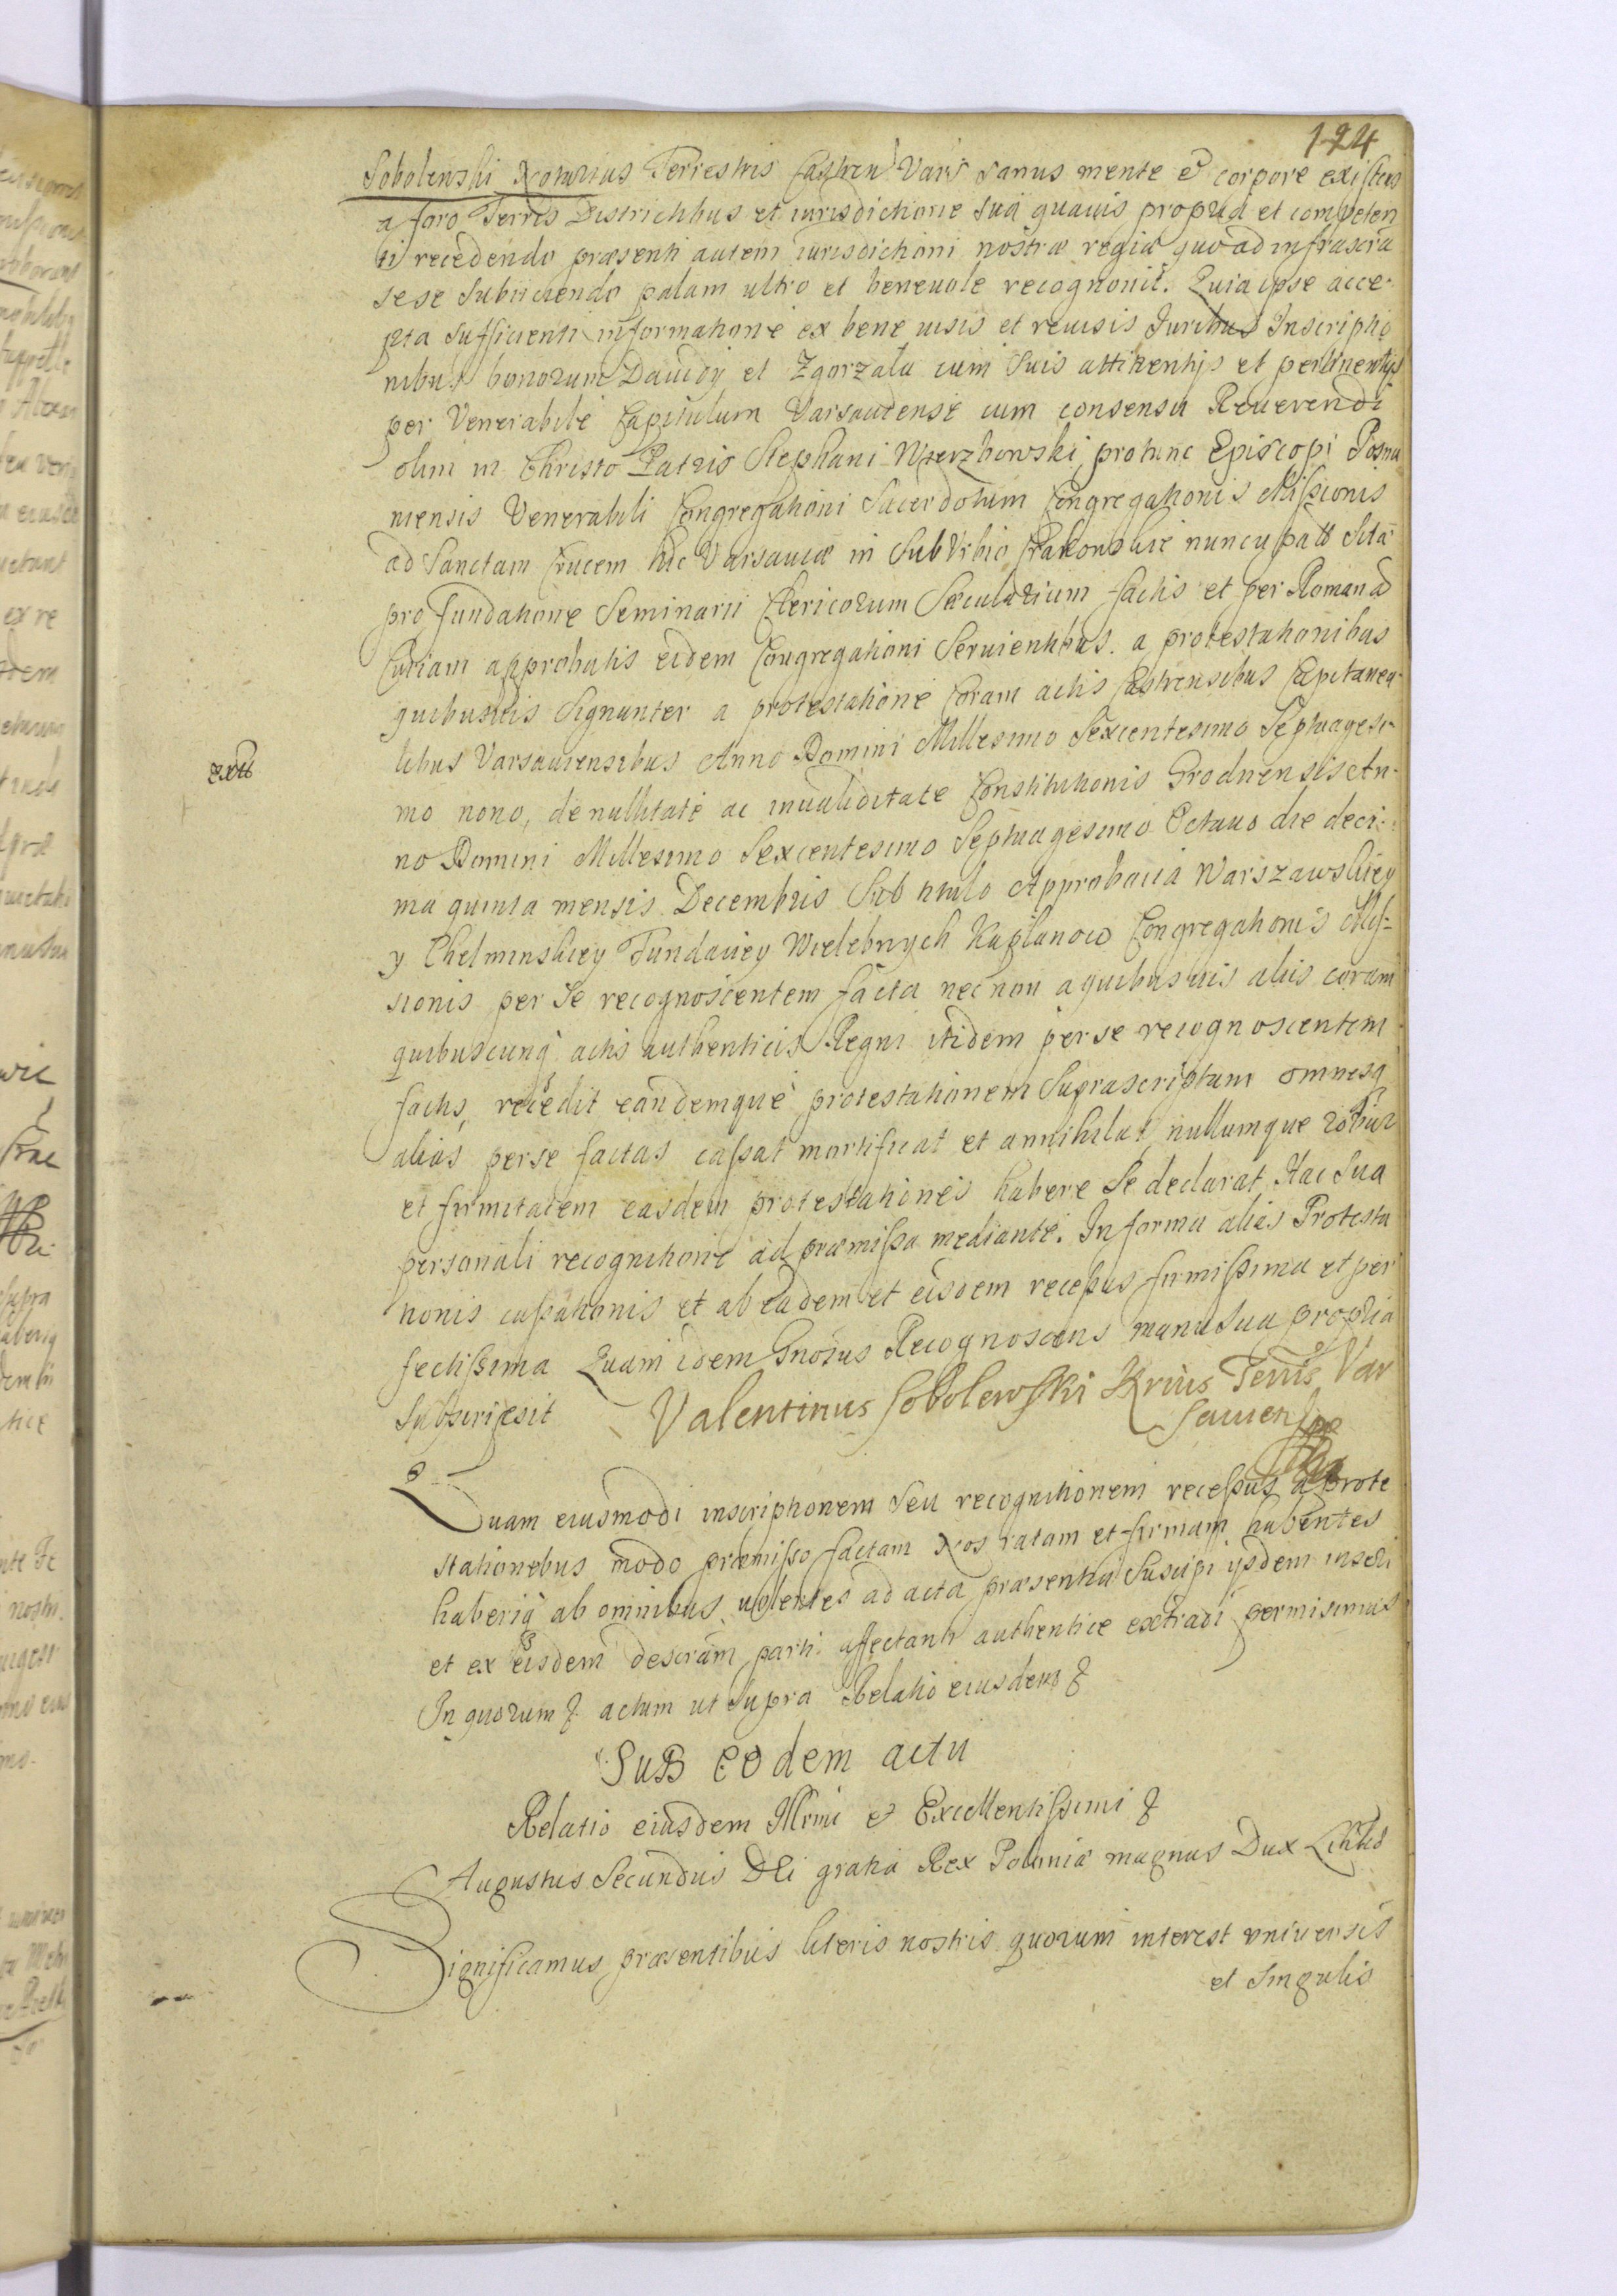 124
Sobolewski Notarius Terrestris Castren Vars sanus mente et corpore existens
a foro Terris Districtibus et iurisdictione sua quauis propria et competen
ti recedendo præsenti autem iurisdictioni nostræ regiæ quo ad infrascra
sese subiiciendo palam ultro et beneuole recognouit. Quia ipse acce-
pta sufficienti informatione ex bene uisis et reuisis Juribus Inscriptio
nibus bonorum Dawidy et Zgorzala cum suis attinentijs et pertinentijs
per Venerabile Capitulum Varsauiense cum consensu Reuerendi
olim in Christo Patris Stephani Wierzbowski protunc Episcopi Posna
niensis Venerabili Congregationi Sacerdotum Congregationis Missionis
ad Sanctam Crucem hic Varsauiæ in SubVrbio Krakowskie nuncupatt Sita
pro fundatione Seminarii Clericorum Sæcularium factis et per Romana
Curiam approbatis eidem Congregationi Seruientibus. a protestationibus
quibusuis Signanter a protestatione Coram actis Castrensibus Capitanea-
libus Varsauiensibus Anno Domini Millesimo Sexcentesimo Septuagesi-
exti
mo nono, de nullitate ac inualiditate Constitutionis Grodnensis An-
no Domini Millesimo Sexcentesimo Septuagesimo Octauo die deci-
ma quinta mensis Decembris Sub titulo Approbacia Warszawskiey
y Chelminskiey Fundaciey Wielebnych Kaplanow Congregationis Mis-
sionis per Se recognoscentem facta nec non a quibusuis aliis coram
quibuscunq actis authenticis Regni itidem per se recognoscentem
factis, recedit eandemque protestationem Suprascriptam omnesq
alias per se factas cassat mortificat et annihilat nullumque robur
et firmitatem easdem protestationes habere Se declarat. Hac Sua
personali recognitione ad præmissa mediante. In forma alias Protesta
tionis cassationis et ab eadem et eisdem recessus firmissima et per
fectissima Quam idem Gnosus Recognoscens manu sua propria
Subscripsit Valentinus Sobolewski Nrius Terris Var
sauiensis
Quam eiusmodi inscriptionem Seu recognitionem recessus a prote
stationebus modo præmisso factam Nos ratam et firmam habentes
haberiq ab omnibus uolentes ad acta præsentia Suscipi ijsdem inseri
et ex eisdem descram parti affectanti authentice extradi permisimus
In quorum & actum ut Supra Relatio eiusdem &
SuB eodem actu
Relatio eiusdem Illrmi & Excellentissimi &
Augustus Secundus DEi gratia Rex Poloniæ magnus Dux Litthuæ
Significamus præsentibus literis nostris quorum interest vniuersis
et Singulis